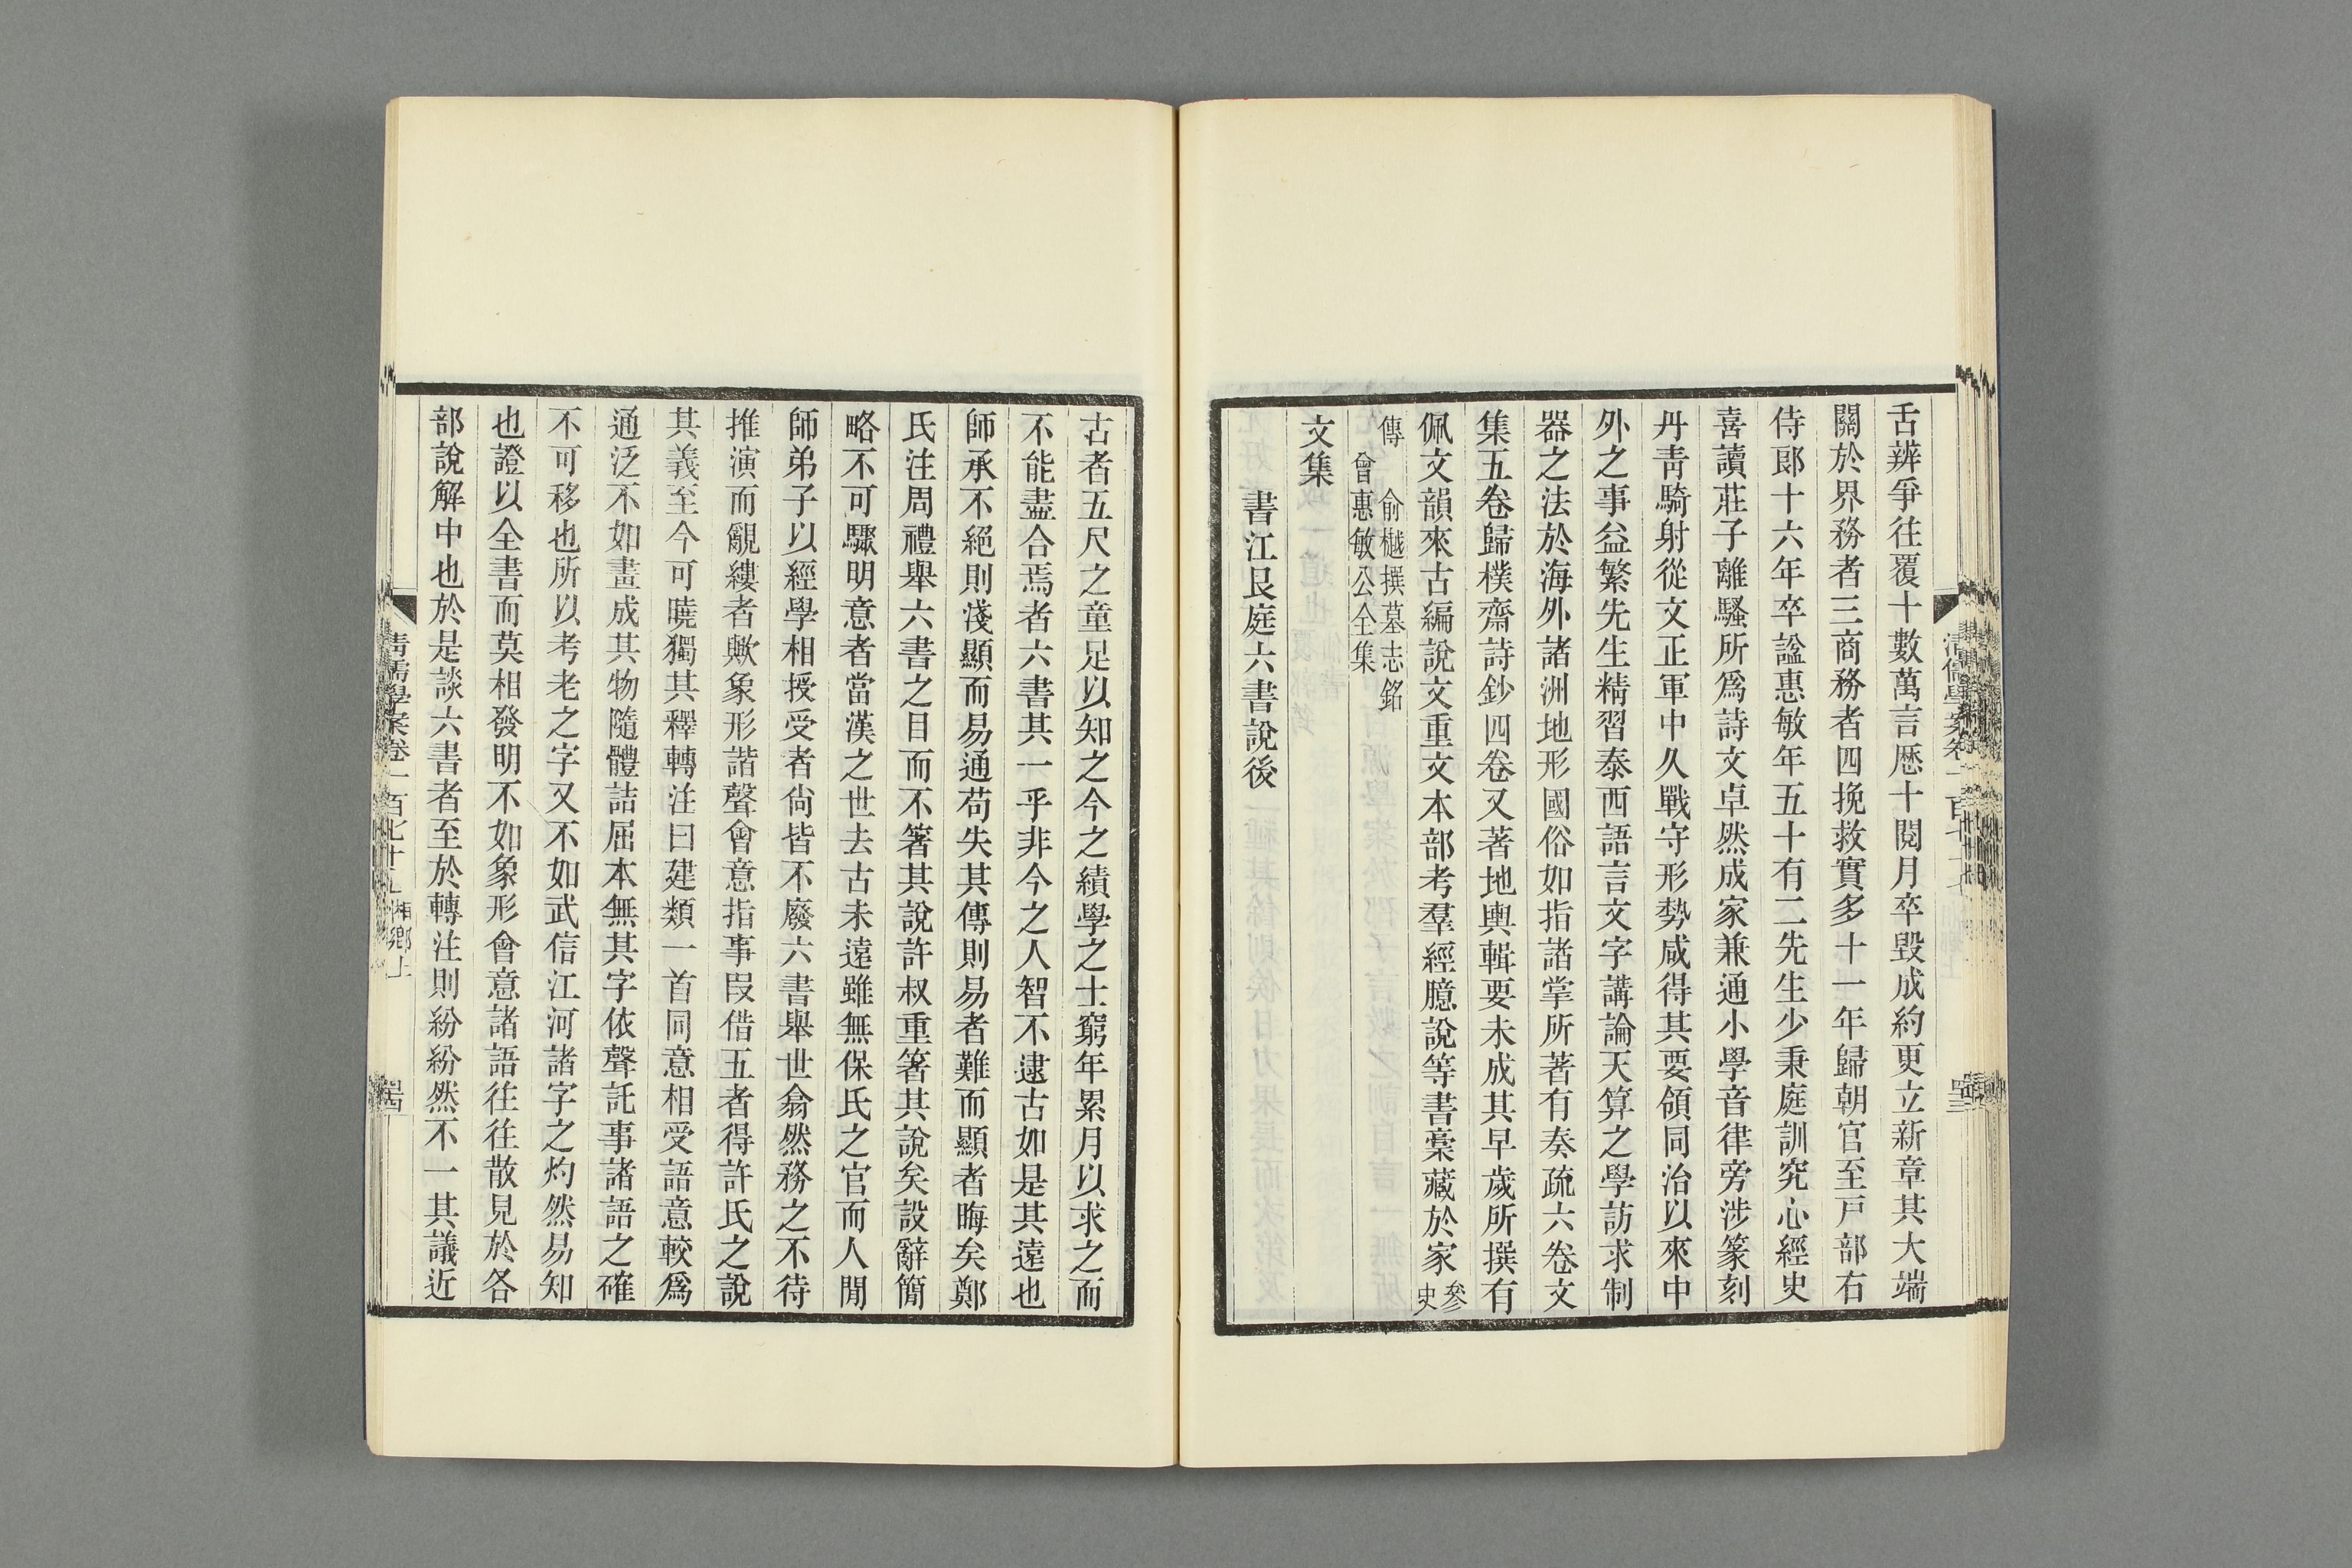 舌辨爭往覆十數萬言歷十閱月卒毀成約更立新章其大端
關於界務者三商務者四挽救實多十一年歸朝官至戸部右
侍郎十六年卒諡惠敏年五十有二先生少秉庭訓究心經史
喜讀莊子離騷所爲詩文卓然成家兼通小學音律旁涉篆刻
丹青騎射從文正軍中久戰守形勢咸得其要領同治以來中
外之事益繁先生精習泰西語言文字講論天算之學訪求制
器之法於海外諸洲地形國俗如指諸掌所著有奏疏六卷文
集五卷歸樸齋詩鈔四卷又著地輿輯要未成其早歲所撰有
佩文韻來古編說文重文本部考羣經臆說等書稾藏於家參史
傳　俞樾撰墓志銘
曾惠敏公全集
文集
書江艮庭六書說後
清儒學案卷一百七十七
四十三
古者五尺之童足以知之今之績學之士窮年累月以求之而
不能盡合焉者六書其一乎非今之人智不逮古如是其遠也
師承不絕則淺顯而易通苟失其傳則易者難而顯者晦矣鄭
氏注周禮舉六書之目而不箸其說許叔重箸其說矣設辭簡
略不可驟明意者當漢之世去古未遠雖無保氏之官而人閒
師弟子以經學相授受者尙皆不廢六書舉世翕然務之不待
推演而覼縷者歟象形諧聲會意指事叚借五者得許氏之說
其義至今可曉獨其釋轉注曰建類一首同意相受語意較爲
通泛不如畫成其物隨體詰屈本無其字依聲託事諸語之確
不可移也所以考老之字又不如武信江河諸字之灼然易知
也證以全書而莫相發明不如象形會意諸語往往散見於各
部說解中也於是談六書者至於轉注則紛紛然不一其議近
清儒學案卷一百七十七　湘鄉上
四十四